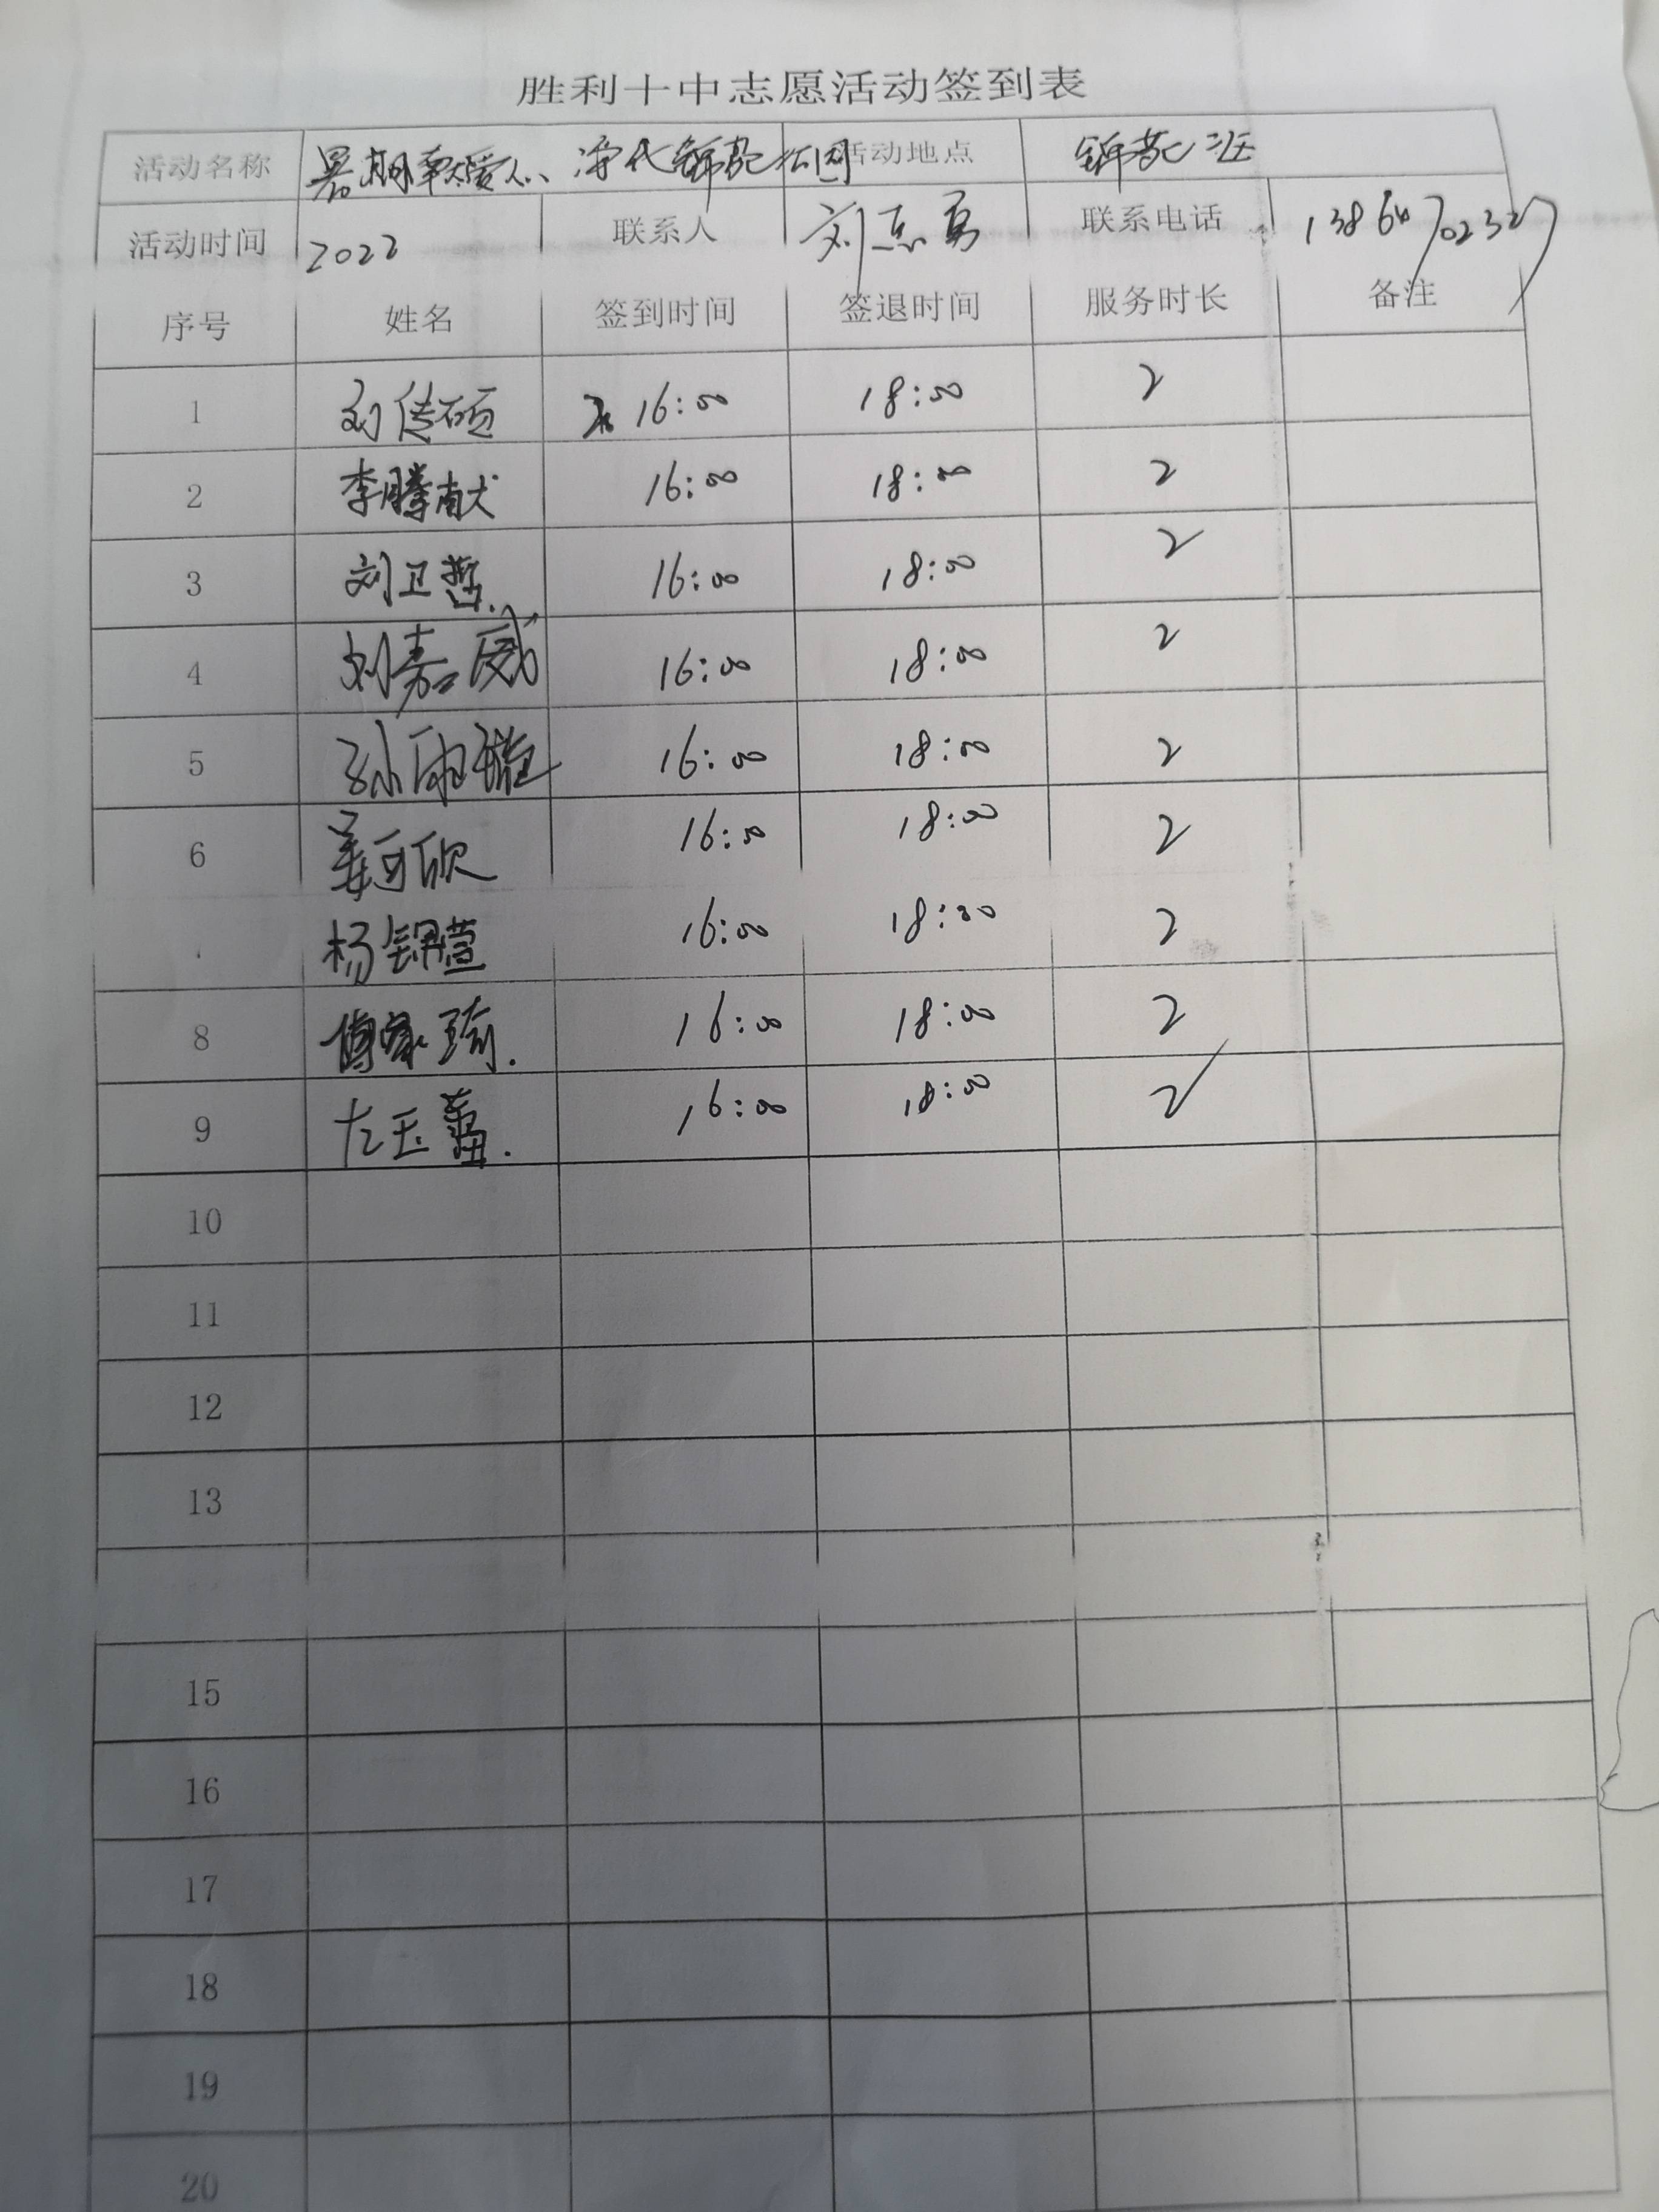 胜利十中志愿活动签到表
活动名称 暑期献爱心、净化锦苑公园 活动地点 锦苑二区
活动时间 2022 联系人 刘志勇 联系电话
序号 姓名 签到时间 签退时间 服务时长 备注
1 刘传硕 16:00 18:00 2
2 李腾献 16:00 18:00 2
3 刘卫哲. 16:00 18:00 2
4 刘嘉威 16:00 18:00 2
5 孙雨璇 16:00 18:00 2
6 姜可欣 16:00 18:00 2
杨锦萱 16:00 18:00 2
8 傅家琦. 16:00 18:00 2
9 左玉 16:00 18:00 2
10
11
12
13
15
16
17
18
19
20